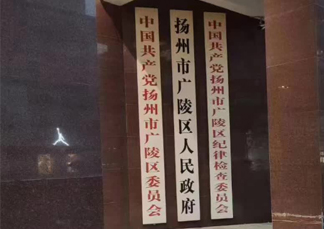 中国共产党扬州市广陵区委员会
扬州市广陵区人民政府
中国共产党扬州市广陵区纪律检查委员会